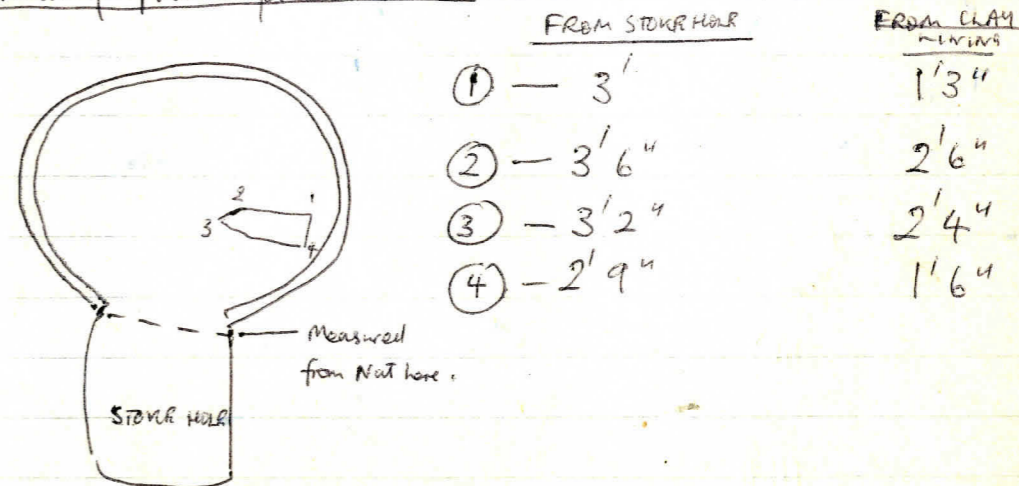 FROM STOKE HOLE
FROM CLAY
LINING
① — 3'
1'3"
② — 3'6"
2'6"
③ — 3'2"
2'4"
④ — 2'9"
1'6"
2
1
3
4
Measured
from Nat here.
STOKE HOLE